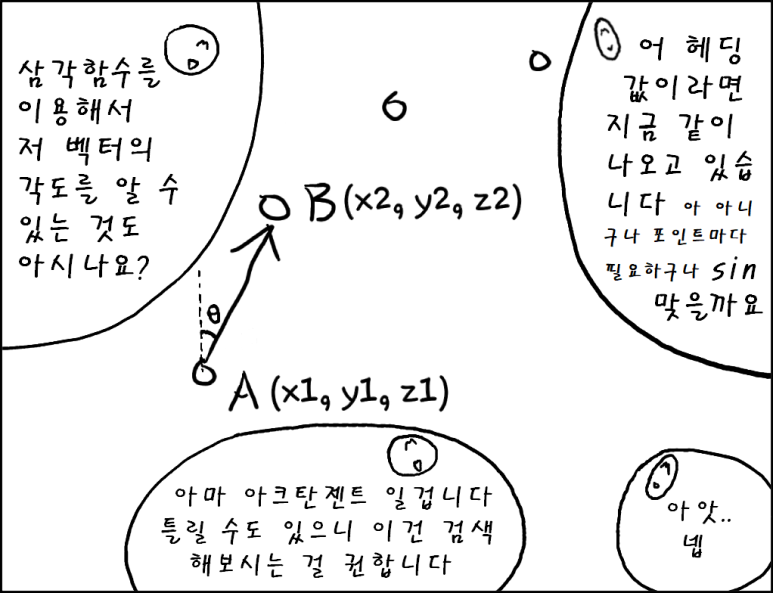 삼각함수를
이용해서
저 벡터의
각도를 알 수
있는 것도
아시나요?
어 헤딩
값이라면
지금 같이
나오고 있습
니다 아 아니
구나 포인트마다
필요하구나 sin
맞을까요
B (x2, y2, z2)
θ
A (x1, y1, z1)
아마 아크탄젠트 일겁니다
틀릴 수도 있으니 이건 검색
해보시는 걸 권합니다
아 앗..
넵